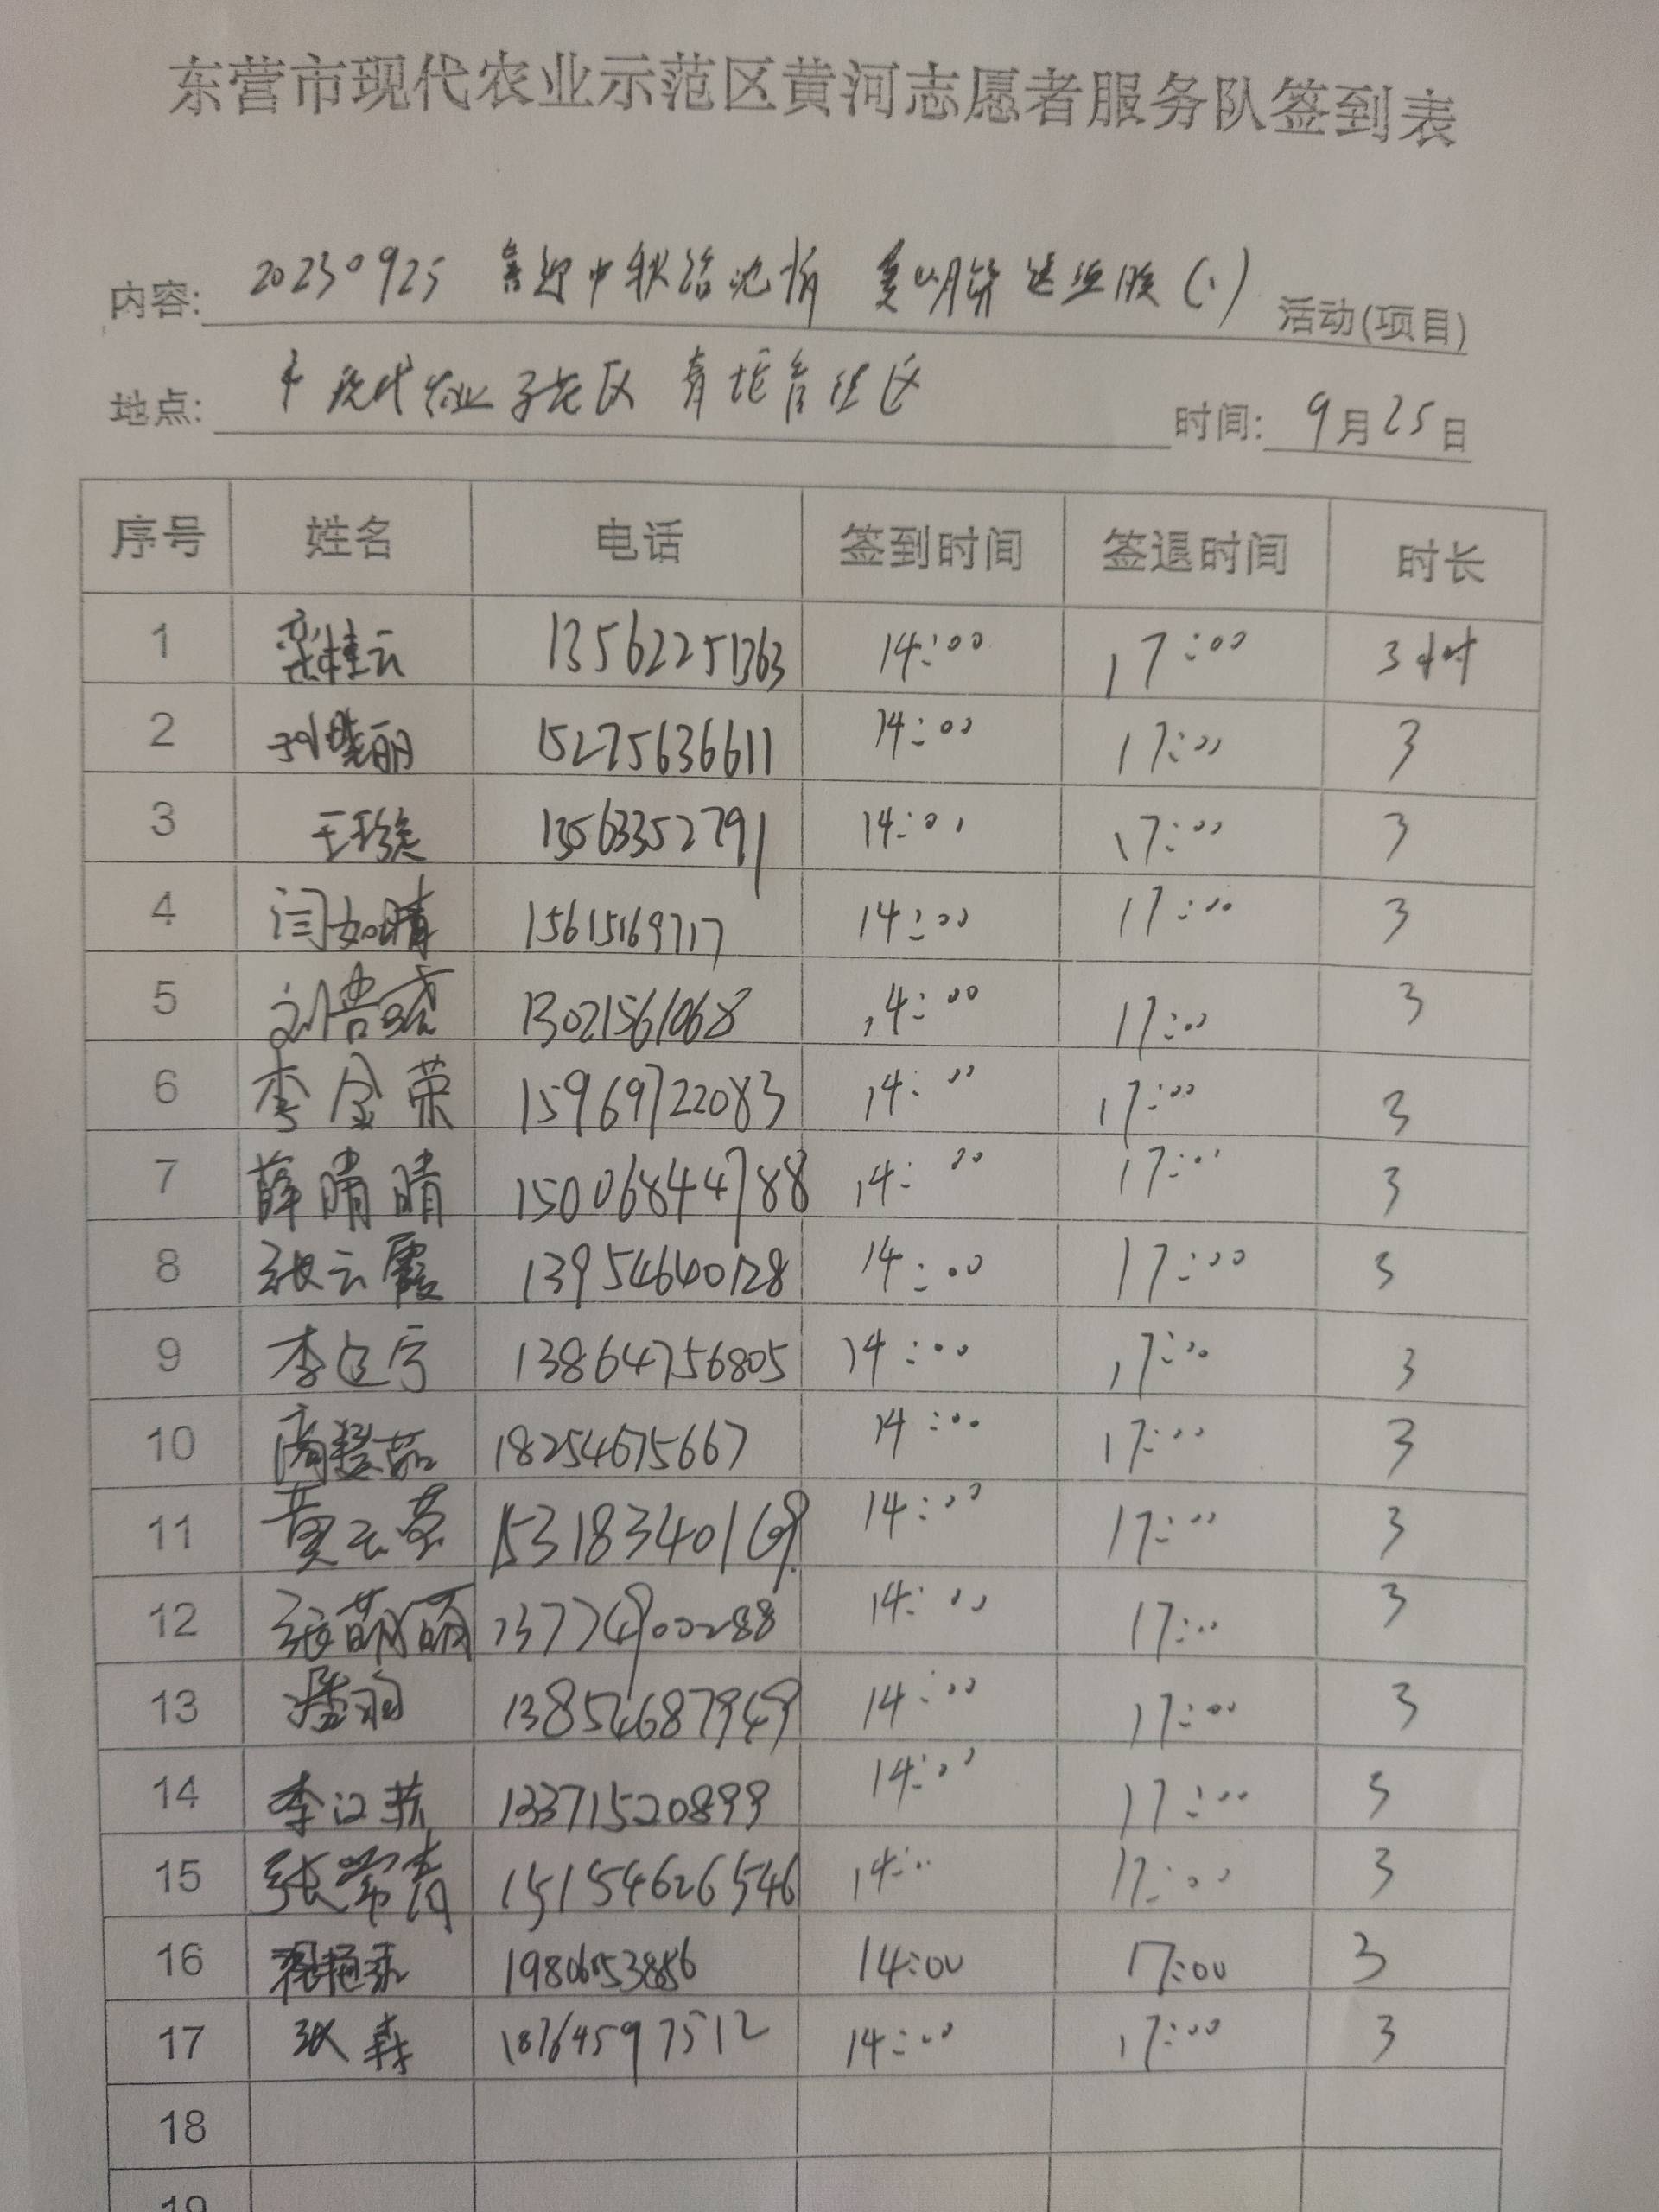 东营市现代农业示范区黄河志愿者服务队签到表
内容: 20230925 喜迎中秋 (1) 活动(项目)
地点: 市现代农业示范区 管理区 时间: 9月25日
序号 姓名 电话 签到时间 签退时间 时长
1 栾桂云 13562251363 14:00 17:00 3小时
2 刘晓丽 15275636611 14:00 17:00 3
3 13563352791 14:00 17:00 3
4 闫如晴 15615169717 14:00 17:00 3
5 13021561068 14:00 17:00 3
6 李金荣 15969722083 14:00 17:00 3
7 薛晴晴 15006844788 14:00 17:00 3
8 张云霞 13954640128 14:00 17:00 3
9 13864756805 14:00 17:00 3
10 18254675667 14:00 17:00 3
11 黄云英 15318340169 14:00 17:00 3
12 张萌萌 13774900288 14:00 17:00 3
13 13854687949 14:00 17:00 3
14 13371520899 14:00 17:00 3
15 张常青 15154626546 14:00 17:00 3
16 14:00 17:00 3
17 张森 18764597512 14:00 17:00 3
18
19